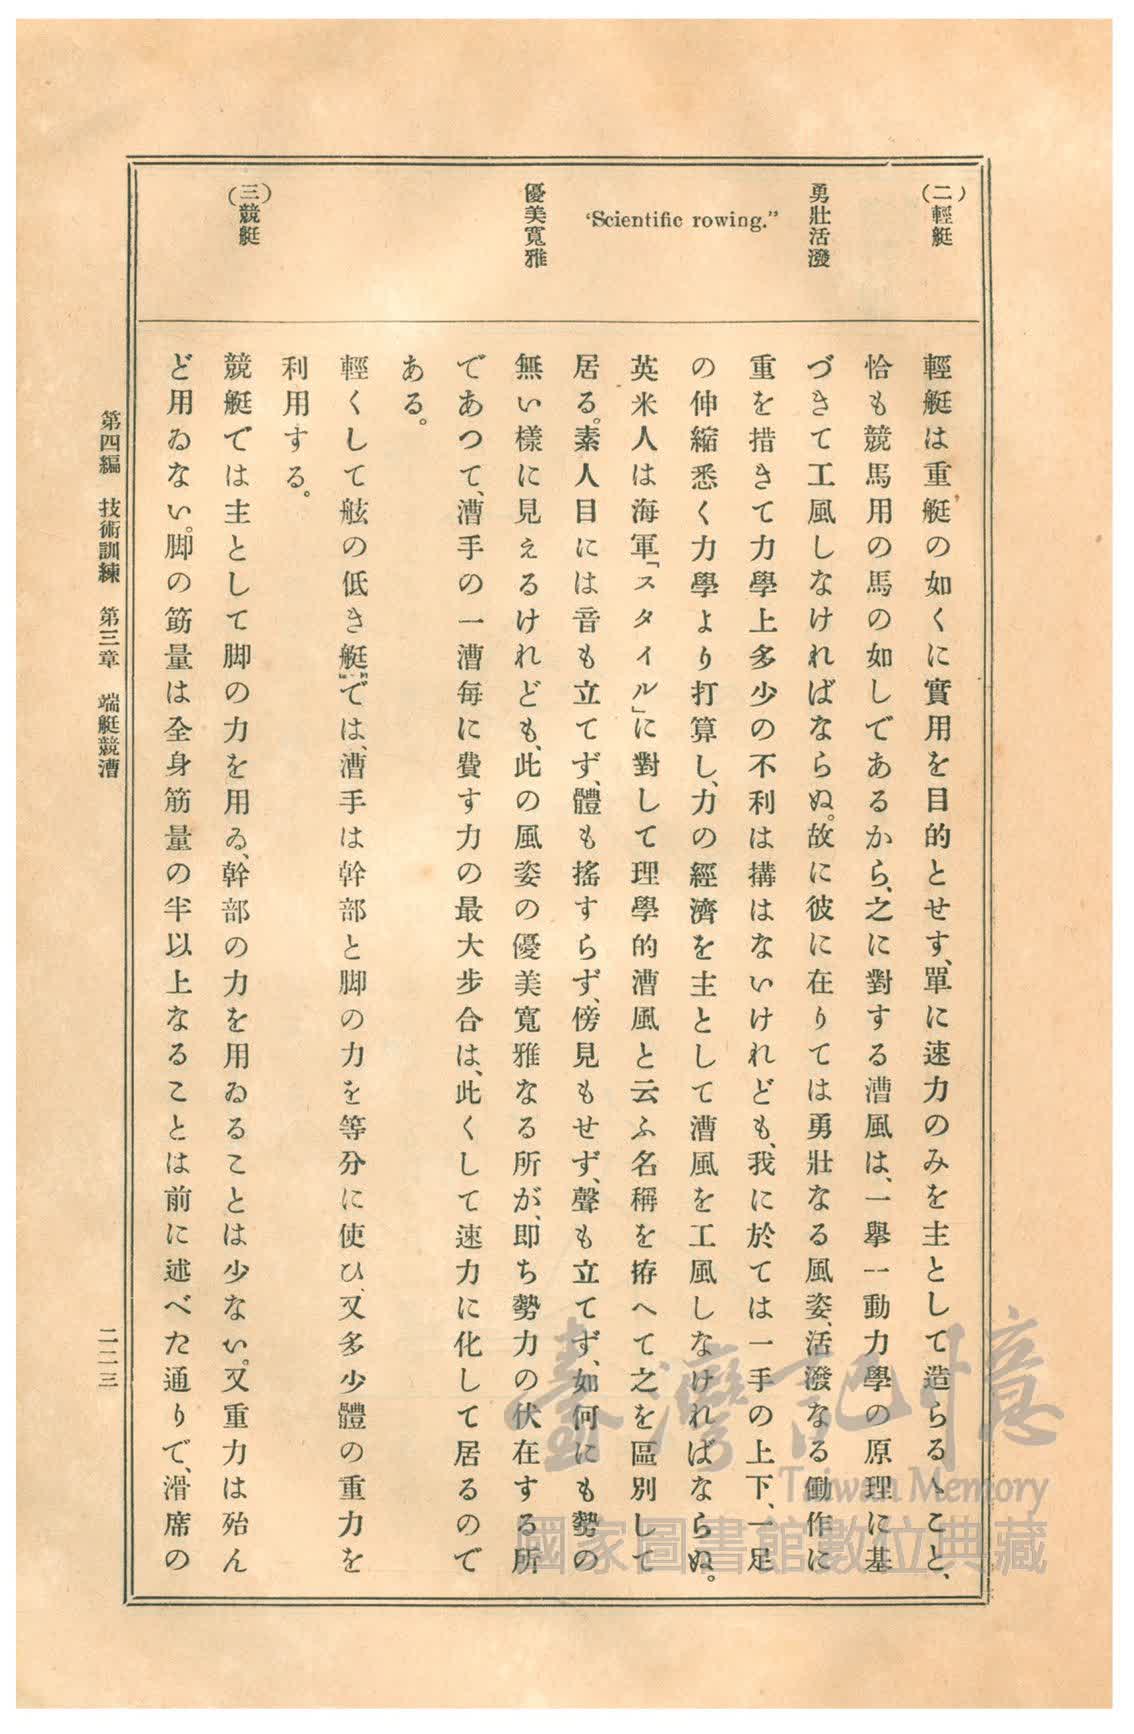 (二)輕艇
勇壯活潑
‘Scientific rowing.”
優美寬雅
(三)競艇
輕艇は重艇の如くに實用を目的とせす、單に速力のみを主として造らるゝこと、
恰も競馬用の馬の如しであるから、之に對する漕風は、一擧一動力學の原理に基
づきて工風しなければならぬ。故に彼に在りては勇壯なる風姿、活潑なる働作に
重を措きて力學上多少の不利は搆はないけれども、我に於ては一手の上下、一足
の伸縮悉く力學より打算し、力の經濟を主として漕風を工風しなければならぬ。
英米人は海軍「スタイル」に對して理學的漕風と云ふ名稱を拵へて之を區別して
居る。素人目には音も立てず、體も搖すらず、傍見もせず、聲も立てず、如何にも勢の
無い樣に見えるけれども、此の風姿の優美寬雅なる所が、即ち勢力の伏在する所
であつて、漕手の一漕每に費す力の最大步合は、此くして速力に化して居るので
ある。
輕くして舷の低き艇では、漕手は幹部と脚の力を等分に使ひ、又多少體の重力を
利用する。
競艇では主として脚の力を用ゐ、幹部の力を用ゐることは少ない。又重力は殆ん
ど用ゐない。脚の筋量は全身筋量の半以上なることは前に述べた通りで、滑席の
第四編 技術訓練 第三章 端艇競漕
二二三
臺灣記憶
Taiwan Memory
國家圖書館數位典藏